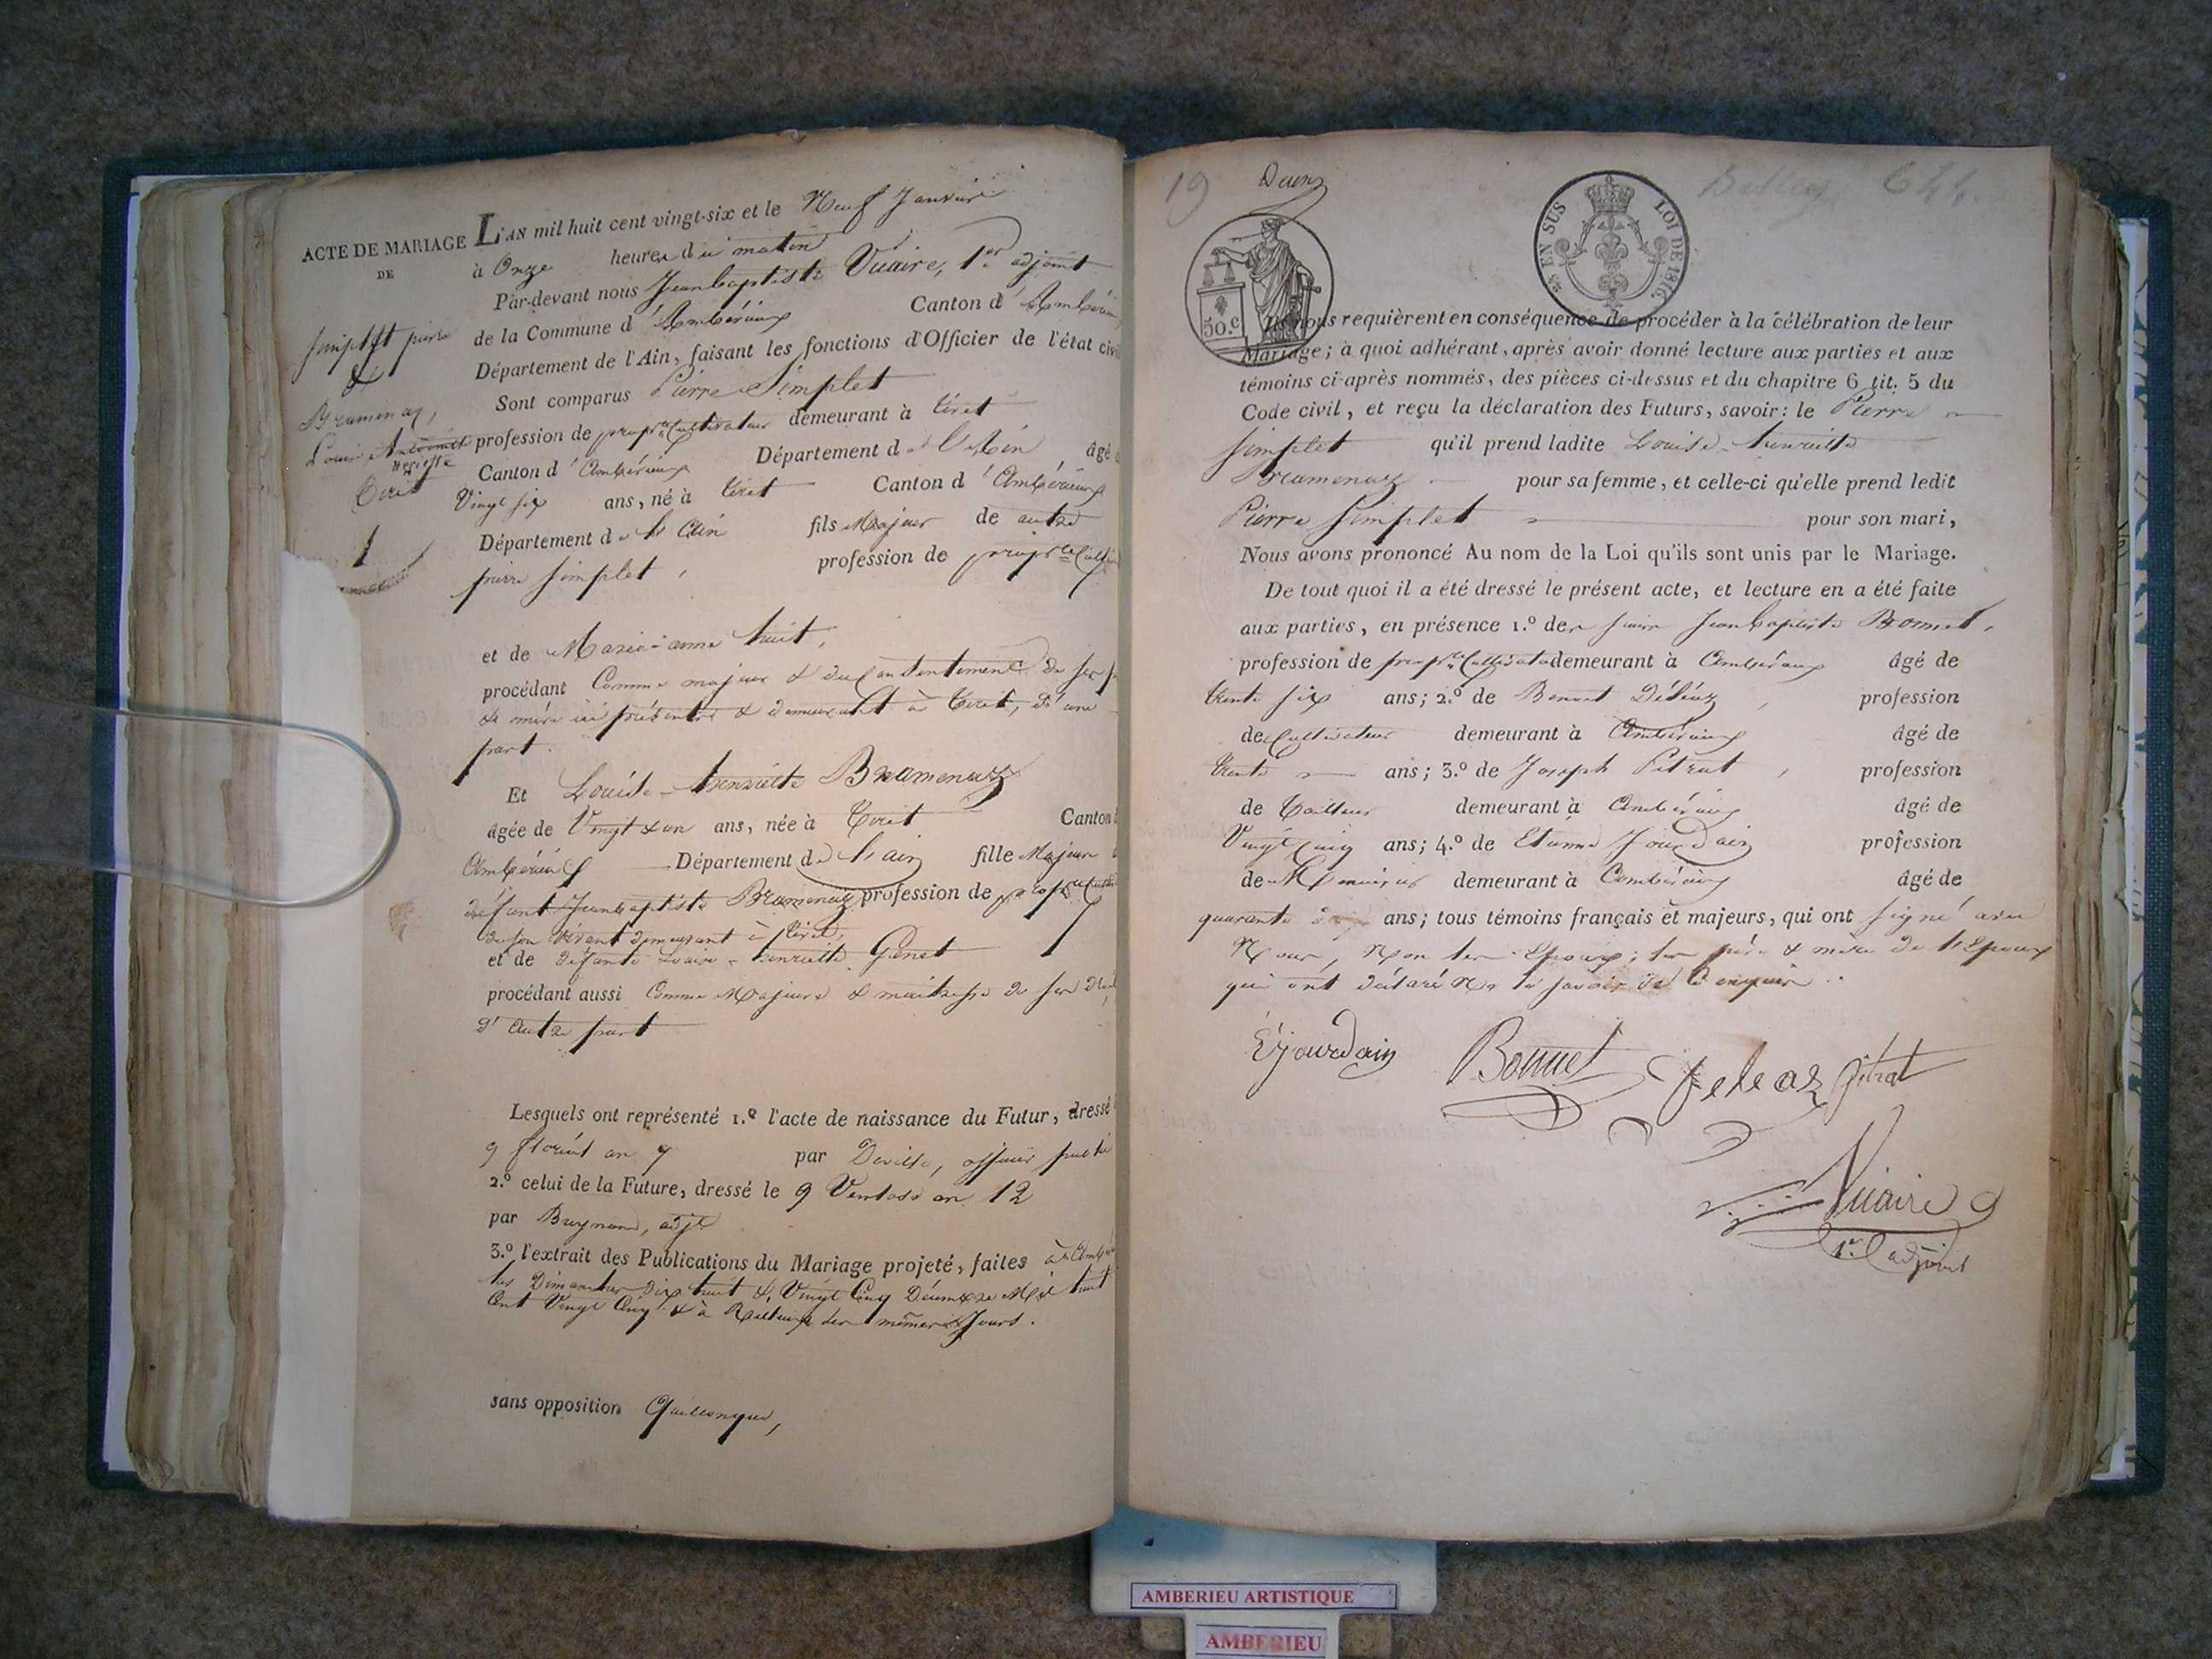 ACTE DE MARIAGE
DE
Simplet pierre
&
Bramenaz,
Louise
henriette
Tiret
1
L'AN mil huit cent vingt-six et le Neuf Janvier
à Onze heures du matin
Par-devant nous Jean baptiste Vuaire, 1er adjoint
de la Commune d'Ambérieux Canton d'Ambérieu
Département de l'Ain, faisant les fonctions d'Officier de l'état civil
Sont comparus Pierre Simplet
profession de propre Cultivateur demeurant à Tiret
Canton d'Ambérieux Département de l'Ain âgé
Vingt six ans, né à Tiret Canton d'Ambérieux
Département de l'Ain fils Majeur de autre
pierre Simplet, profession de propre
et de Marie-anne huit,
procédant Comme majeur & du Consentement de ses
& mère ici présents & demeurant à Tiret, d'une
part.
Et Louise-henriette Bramenaz
âgée de Vingt & un ans, née à Tiret Canton
Ambérieux Département de l'ain fille Majeure
défunt Jean baptiste Bramenaz profession de propre
de son vivant demeurant à Tiret,
et de défunte Louise-henriette Genet
procédant aussi Comme Majeure & maitresse de ses
d'autre part
Lesquels ont représenté 1.º l'acte de naissance du Futur, dressé
9 floréal an 7 par Deville, officier public
2.º celui de la Future, dressé le 9 Ventose an 12
par adjt
3.º l'extrait des Publications du Mariage projeté, faites à
les Dimanches Dix huit & Vingt Cinq Décembre Mil huit
Cent Vingt Cinq & à les mêmes Jours.
sans opposition Quelconque,
19
EN SUS
LOI DE 1816.
50.c
Ils nous requièrent en conséquence de procéder à la célébration de leur
Mariage; à quoi adhérant, après avoir donné lecture aux parties et aux
témoins ci-après nommés, des pièces ci-dessus et du chapitre 6 tit. 5 du
Code civil, et reçu la déclaration des Futurs, savoir: le Pierre
Simplet qu'il prend ladite Louise-henriette
Bramenaz pour sa femme, et celle-ci qu'elle prend ledit
Pierre Simplet pour son mari,
Nous avons prononcé Au nom de la Loi qu'ils sont unis par le Mariage.
De tout quoi il a été dressé le présent acte, et lecture en a été faite
aux parties, en présence 1.º des sieurs Jean baptiste Bonnet,
profession de propre Cultivateur demeurant à Ambérieux âgé de
trente six ans; 2.º de Benoit Déléaz, profession
de Cultivateur demeurant à Ambérieux âgé de
trente ans; 3.º de Joseph Pitrat, profession
de Tailleur demeurant à Ambérieux âgé de
Vingt Cinq ans; 4.º de Etienne Jourdain profession
de Menuisier demeurant à Ambérieux âgé de
quarante ans; tous témoins français et majeurs, qui ont signé avec
Nous, Non les Epoux; les père & mère de l'Epoux
qui ont déclaré Ne le savoir de Ce enquis.
E Jourdain Bonnet Deleaz pitrat
Vuaire
1er adjoint
AMBERIEU ARTISTIQUE
AMBERIEU